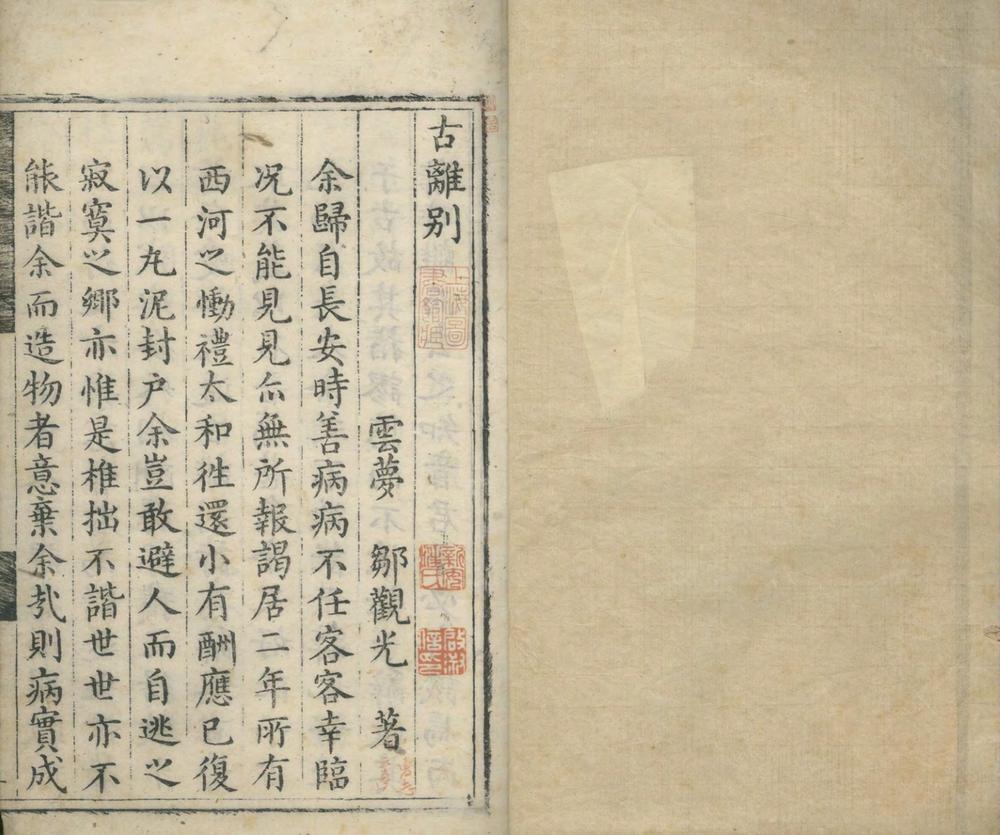 古離别
雲夢 鄒觀光 著
余歸自長安時善病病不任客客幸臨
况不能見見亦無所報謁居二年所有
西河之慟禮太和徃還小有酬應已復
以一丸泥封户余豈敢避人而自逃之
寂寞之鄉亦惟是椎拙不諧世世亦不
能諧余而造物者意棄余㢤則病實成
上海圖書館藏